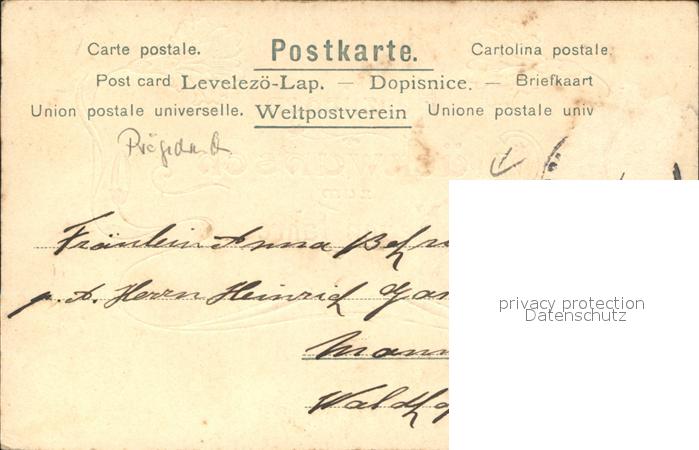 Carte postale. Postkarte. Cartolina postale.
Post card Levelezö-Lap. — Dopisnice. — Briefkaart
Union postale universelle. Weltpostverein Unione postale univ
Prägedruck
Fräulein Anna
p. A. Herrn Heinrich
privacy protection
Datenschutz